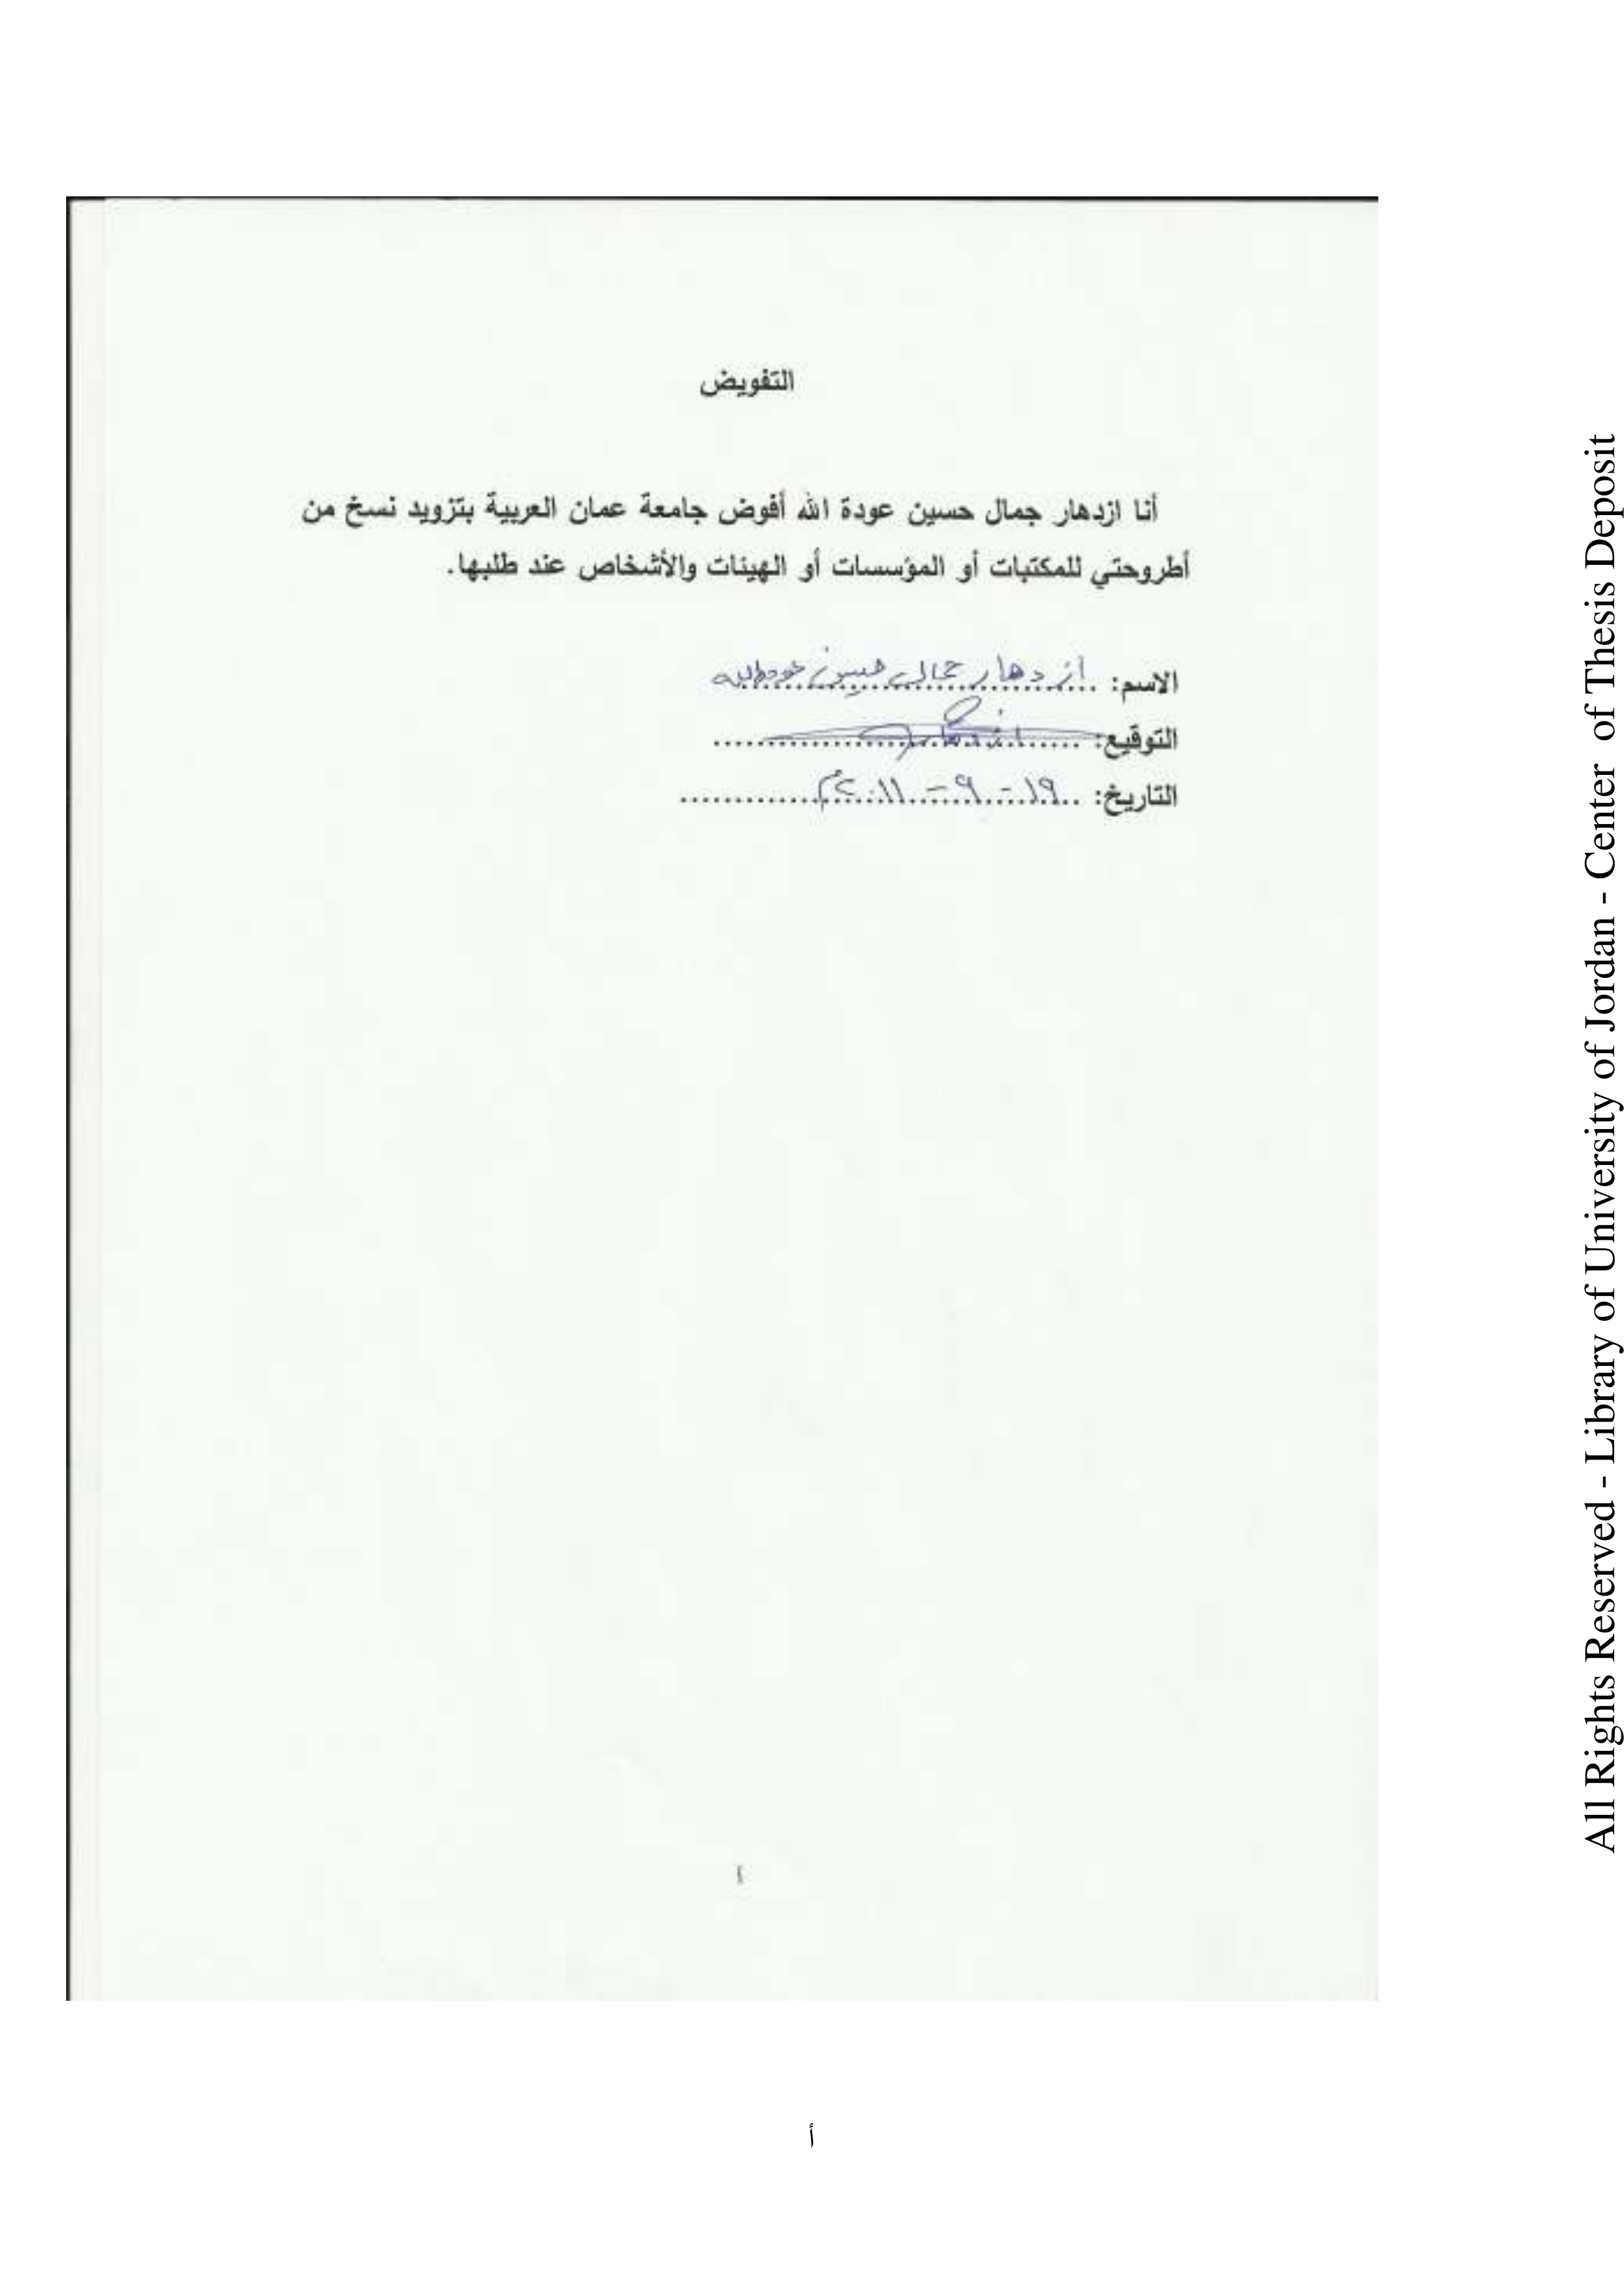 التفويض
أنا ازدهار جمال حسين عودة الله أفوض جامعة عمان العربية بتزويد نسخ من
أطروحتي للمكتبات أو المؤسسات أو الهيئات والأشخاص عند طلبها.
الاسم: ازدهار جمال حسين عودة الله
التوقيع: ازدهار
التاريخ: ١٩ - ٩ - ٢٠١١م
أ
أ
All Rights Reserved - Library of University of Jordan - Center of Thesis Deposit